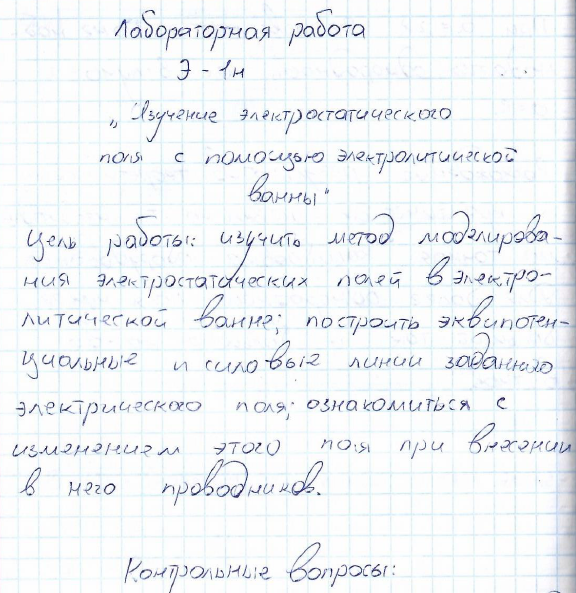 Лабораторная работа
Э-1н
„Изучение электростатического
поля с помощью электролитической
ванны"
Цель работы: изучить метод моделирова-
ния электростатических полей в электро-
литической ванне; построить эквипотен-
циальные и силовые линии заданного
электрического поля; ознакомиться с
изменением этого поля при внесении
в него проводников.
Контрольные вопросы: